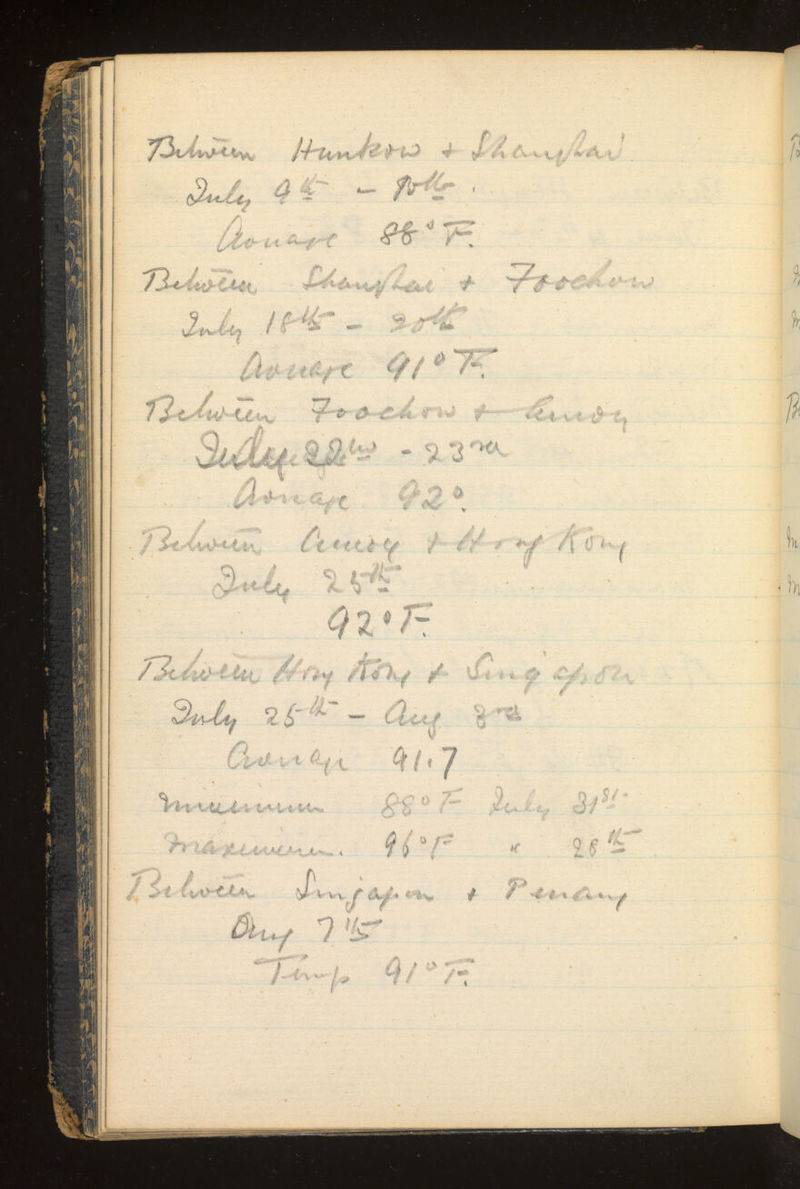 Between Hankow & Shanghai
July 9th - 10th.
Average 88° F.
Between Shanghai & Foochow
July 18th - 20th
Average 91° F.
Between Foochow & Amoy
July 22nd - 23rd
Average 92°.
Between Amoy & Hong Kong
July 25th
92° F.
Between Hong Kong & Singapore
July 25th - Aug 3rd
Average 91.7
Minimum 88° F July 31st.
Maximum. 96° F " 28th
Between Singapore & Penang
Aug 7th
Temp 91° F.